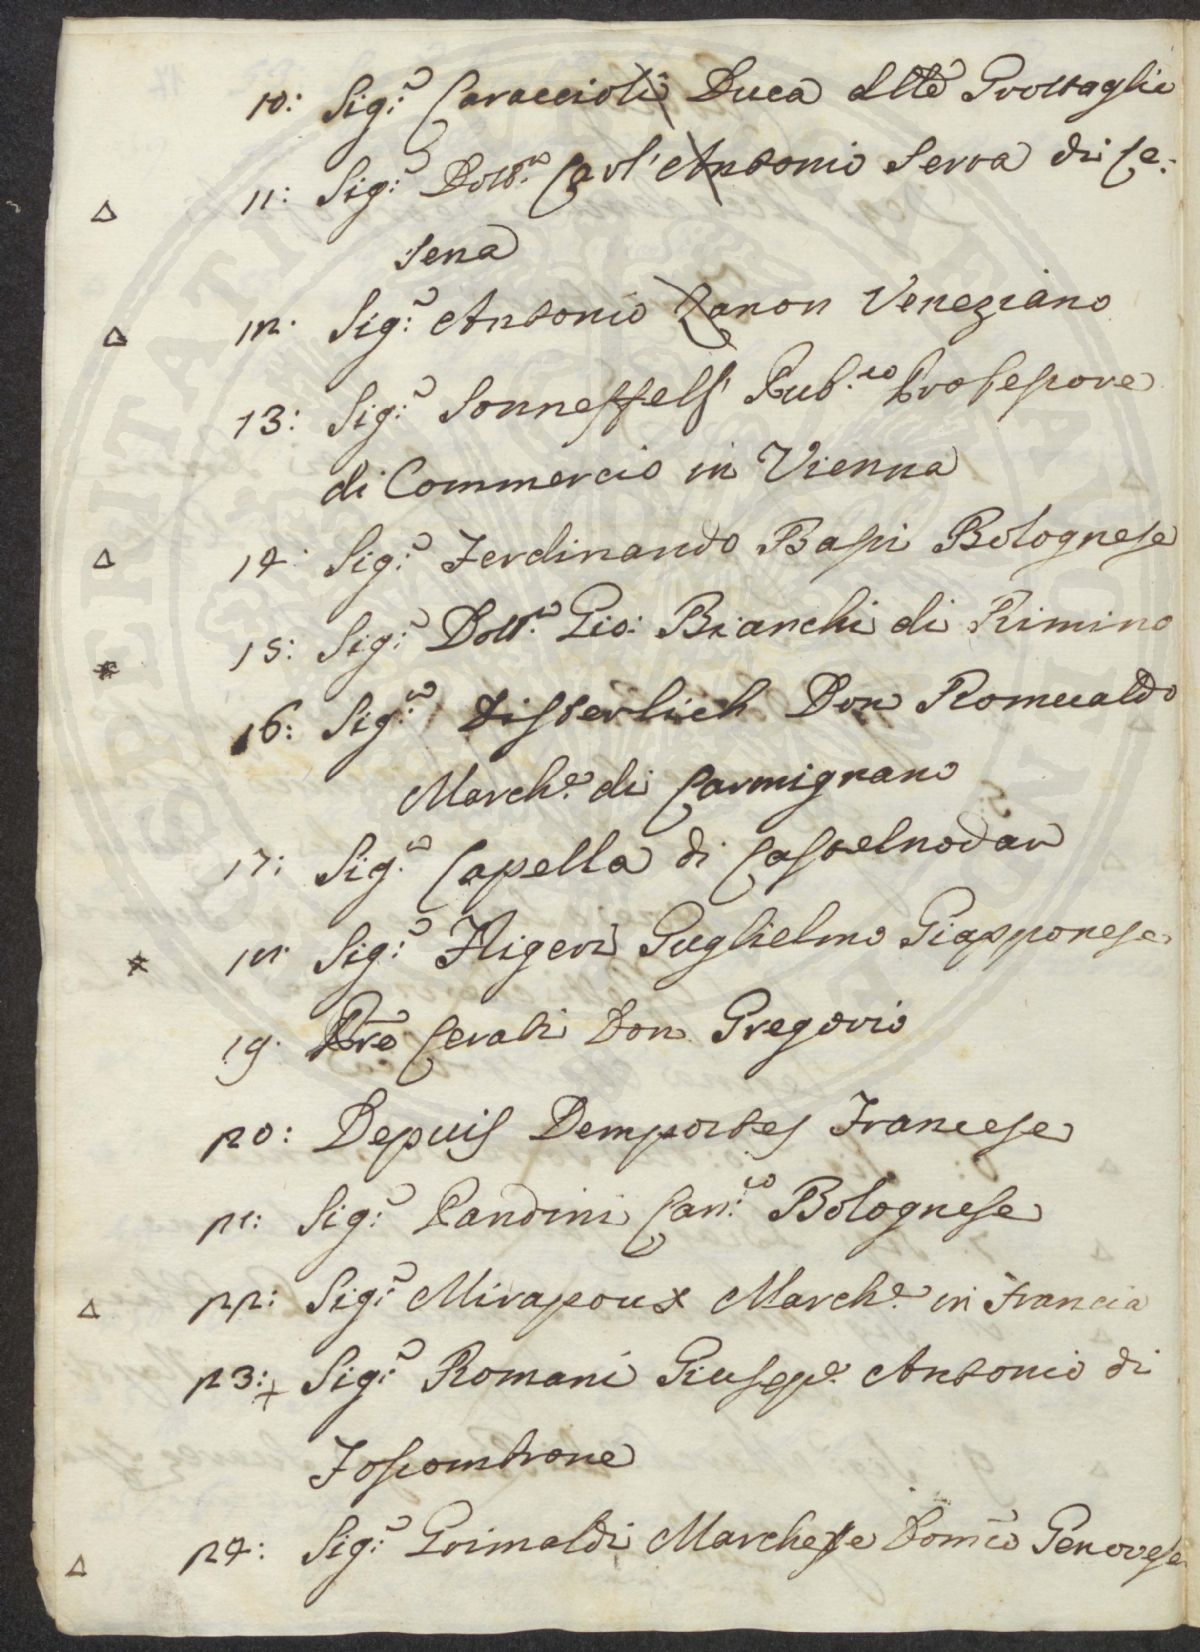 10: Sig:r Caraccioli Duca dlle Grottaglie
△ 11: Sig:r Dott:r Carl'Antonio Serra di Ce:
sena
△ 12. Sig:r Antonio Zanon Veneziano
13: Sig:r Sonnesfels Pub:co Professore
di Commercio in Vienna
△ 14. Sig:r Ferdinando Bassi Bolognese
* 15: Sig:r Dott:r Gio: Bianchi di Rimino
16: Sig:r Disterlich Don Romualdo
March:e di Carmignano
17: Sig:r Capella di Castelnodar
* 18. Sig:r Fligeri Guglielmo Giapponese
19. Pre Cerati Don Gregorio
20: Depuis Demportes Francese
21: Sig:r Pandini Can:co Bolognese
△ 22: Sig:r Mirapoux March:e in Francia
23: + Sig:r Romani Giusep:e Antonio di
Fossombrone
△ 24: Sig:r Grimaldi Marchese Dom:co Genovese